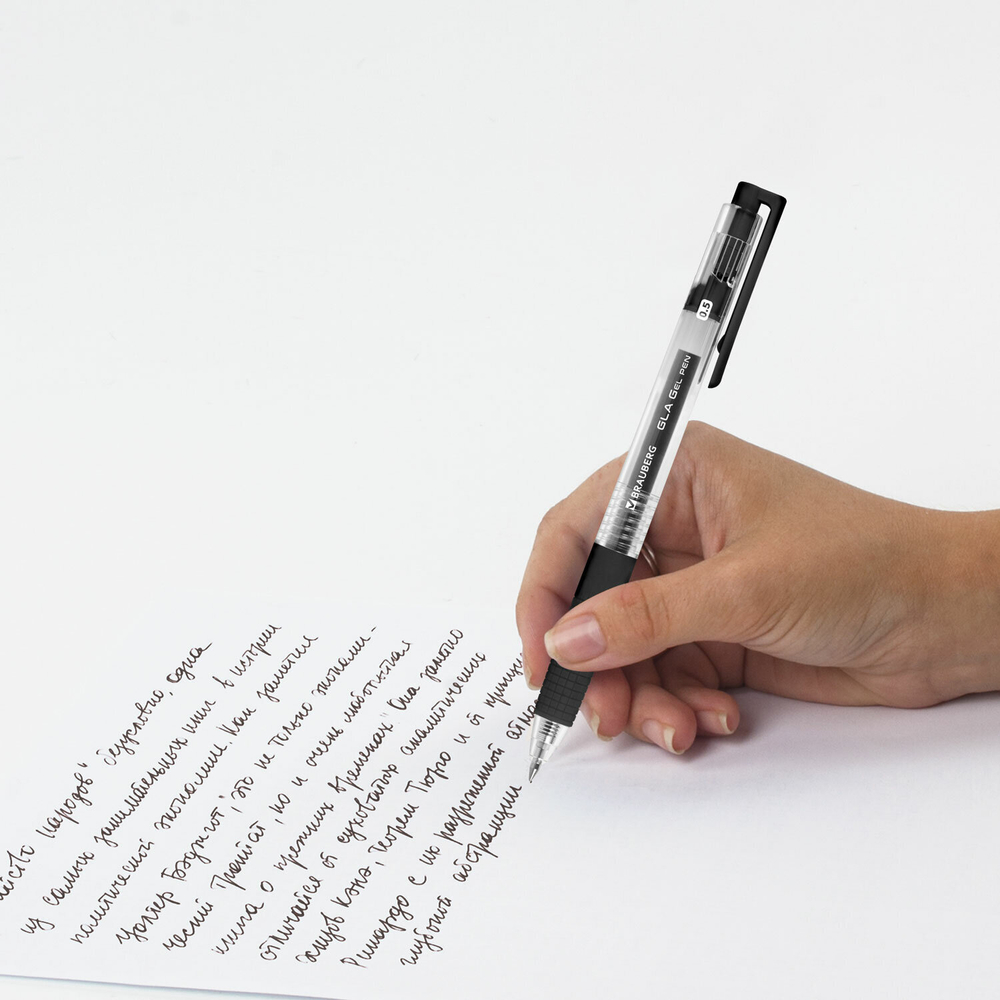 0.5
GLA GEL PEN
BRAUBERG
народов" безусловно, одна
из самых занимательных книг в истории
политической экономии. Как заметил
Уолтер Бэджгот, это не только экономи-
ческий трактат, но и очень любопытная
книга о прежних временах". Она заметно
отличается от суховатых аналитических
Кэнэ, Теории Тюрго и от
Рикардо с их разреженной
глубиной абстракции